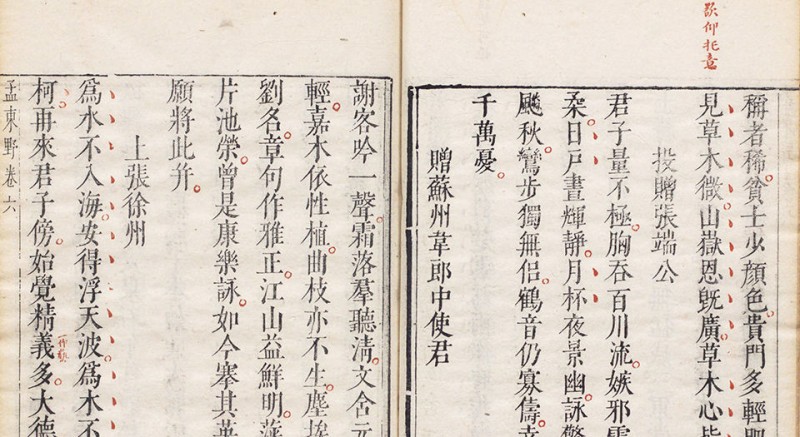 仰托意
稱者稀貧士少顏色貴門多輕
見草木微山嶽恩旣廣草木心皆
投贈張端公
君子量不極胸吞百川流嫉邪霜
柔日戸晝輝靜月杯夜景幽詠驚
飈秋鸞步獨無侶鶴音仍寡儔幸
千萬憂
贈蘇州韋郎中使君
謝客吟一聲霜落羣聽清文含元
輕嘉木依性植曲枝亦不生塵埃
劉名章句作雅正江山益鮮明萍
片池榮曾是康樂詠如今搴其英
願將此幷
上張徐州
爲水不入海安得浮天波爲木不
柯再來君子傍始覺精義多大德
孟東野卷六